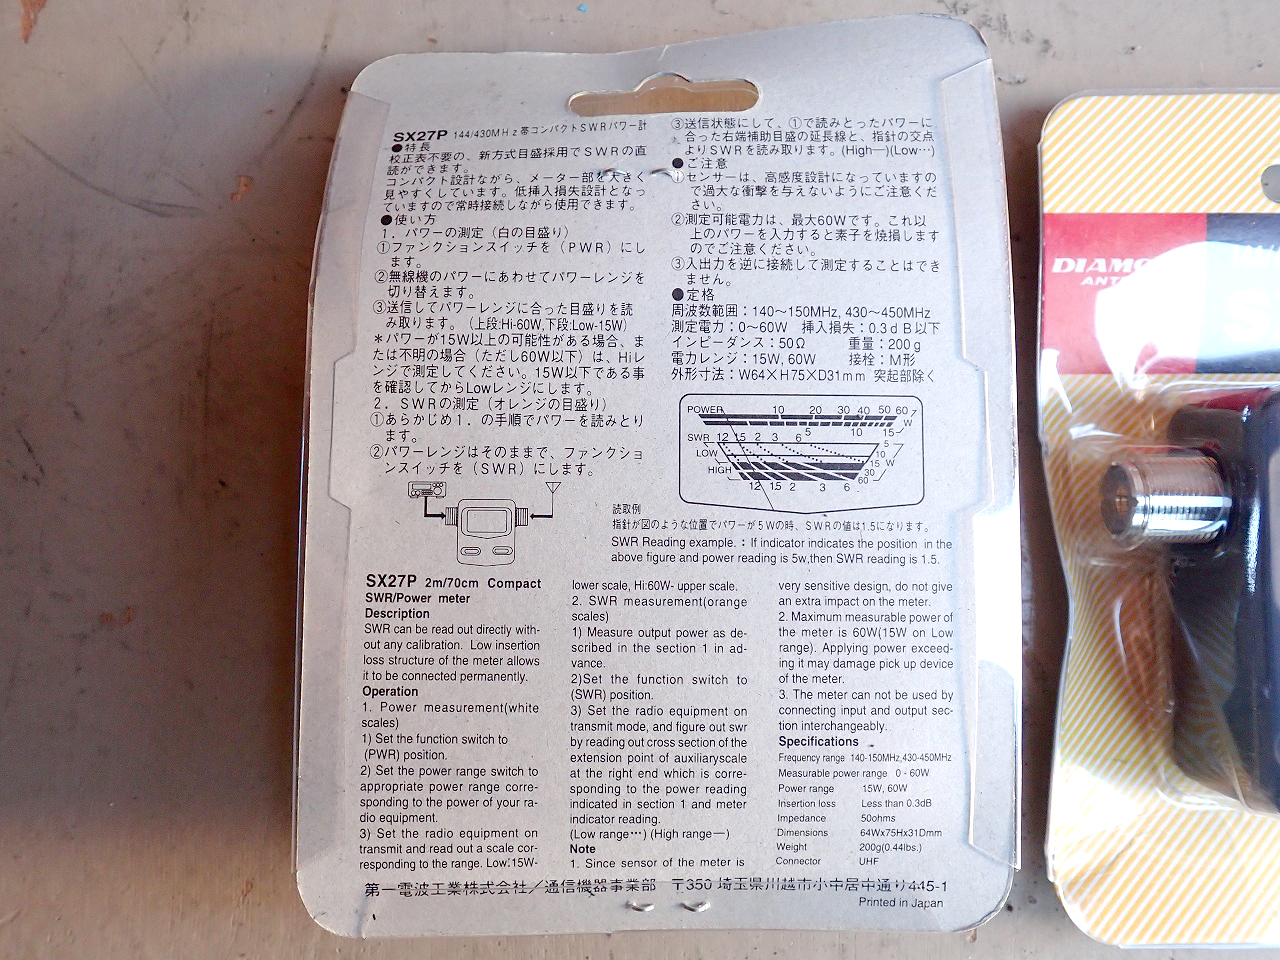 SX27P 144/430MHz帯コンパクトSWRパワー計
●特長
校正表不要の、新方式目盛採用でSWRの直
読ができます。
コンパクト設計ながら、メーター部を大きく
見やすくしています。低挿入損失設計となっ
ていますので常時接続しながら使用できます。
●使い方
1．パワーの測定（白の目盛り）
①ファンクションスイッチを（PWR）にし
ます。
②無線機のパワーにあわせてパワーレンジを
切り替えます。
③送信してパワーレンジに合った目盛りを読
み取ります。（上段:Hi-60W,下段:Low-15W）
＊パワーが15W以上の可能性がある場合、ま
たは不明の場合（ただし60W以下）は、Hiレ
ンジで測定してください。15W以下である事
を確認してからLowレンジにします。
2．SWRの測定（オレンジの目盛り）
①あらかじめ1．の手順でパワーを読みとり
ます。
②パワーレンジはそのままで、ファンクショ
ンスイッチを（SWR）にします。
③送信状態にして、①で読みとったパワーに
合った右端補助目盛の延長線と、指針の交点
よりSWRを読み取ります。(High—)(Low…)
●ご注意
①センサーは、高感度設計になっていますの
で過大な衝撃を与えないようにご注意くだ
さい。
②測定可能電力は、最大60Wです。これ以
上のパワーを入力すると素子を焼損します
のでご注意ください。
③入出力を逆に接続して測定することはでき
ません。
●定格
周波数範囲：140～150MHz, 430～450MHz
測定電力：0～60W 挿入損失：0.3dB以下
インピーダンス：50Ω 重量：200g
電力レンジ：15W, 60W 接栓：M形
外形寸法：W64×H75×D31mm 突起部除く
POWER 10 20 30 40 50 60
5 10 15 W
SWR 1.2 1.5 2 3 6 5
LOW 10
15 W
HIGH 30
60
1.2 1.5 2 3 6
読取例
指針が図のような位置でパワーが5Wの時、SWRの値は1.5になります。
SWR Reading example. : If indicator indicates the position in the
above figure and power reading is 5w,then SWR reading is 1.5.
SX27P 2m/70cm Compact
SWR/Power meter
Description
SWR can be read out directly with-
out any calibration. Low insertion
loss structure of the meter allows
it to be connected permanently.
Operation
1. Power measurement(white
scales)
1) Set the function switch to
(PWR) position.
2) Set the power range switch to
appropriate power range corre-
sponding to the power of your ra-
dio equipment.
3) Set the radio equipment on
transmit and read out a scale cor-
responding to the range. Low:15W-
lower scale, Hi:60W- upper scale.
2. SWR measurement(orange
scales)
1) Measure output power as de-
scribed in the section 1 in ad-
vance.
2)Set the function switch to
(SWR) position.
3) Set the radio equipment on
transmit mode, and figure out swr
by reading out cross section of the
extension point of auxiliaryscale
at the right end which is corre-
sponding to the power reading
indicated in section 1 and meter
indicator reading.
(Low range…) (High range—)
Note
1. Since sensor of the meter is
very sensitive design, do not give
an extra impact on the meter.
2. Maximum measurable power of
the meter is 60W(15W on Low
range). Applying power exceed-
ing it may damage pick up device
of the meter.
3. The meter can not be used by
connecting input and output sec-
tion interchangeably.
Specifications
Frequency range 140-150MHz,430-450MHz
Measurable power range 0 - 60W
Power range 15W, 60W
Insertion loss Less than 0.3dB
Impedance 50ohms
Dimensions 64Wx75Hx31Dmm
Weight 200g(0.44lbs.)
Connector UHF
第一電波工業株式会社／通信機器事業部 〒350 埼玉県川越市小中居中通り445-1
Printed in Japan